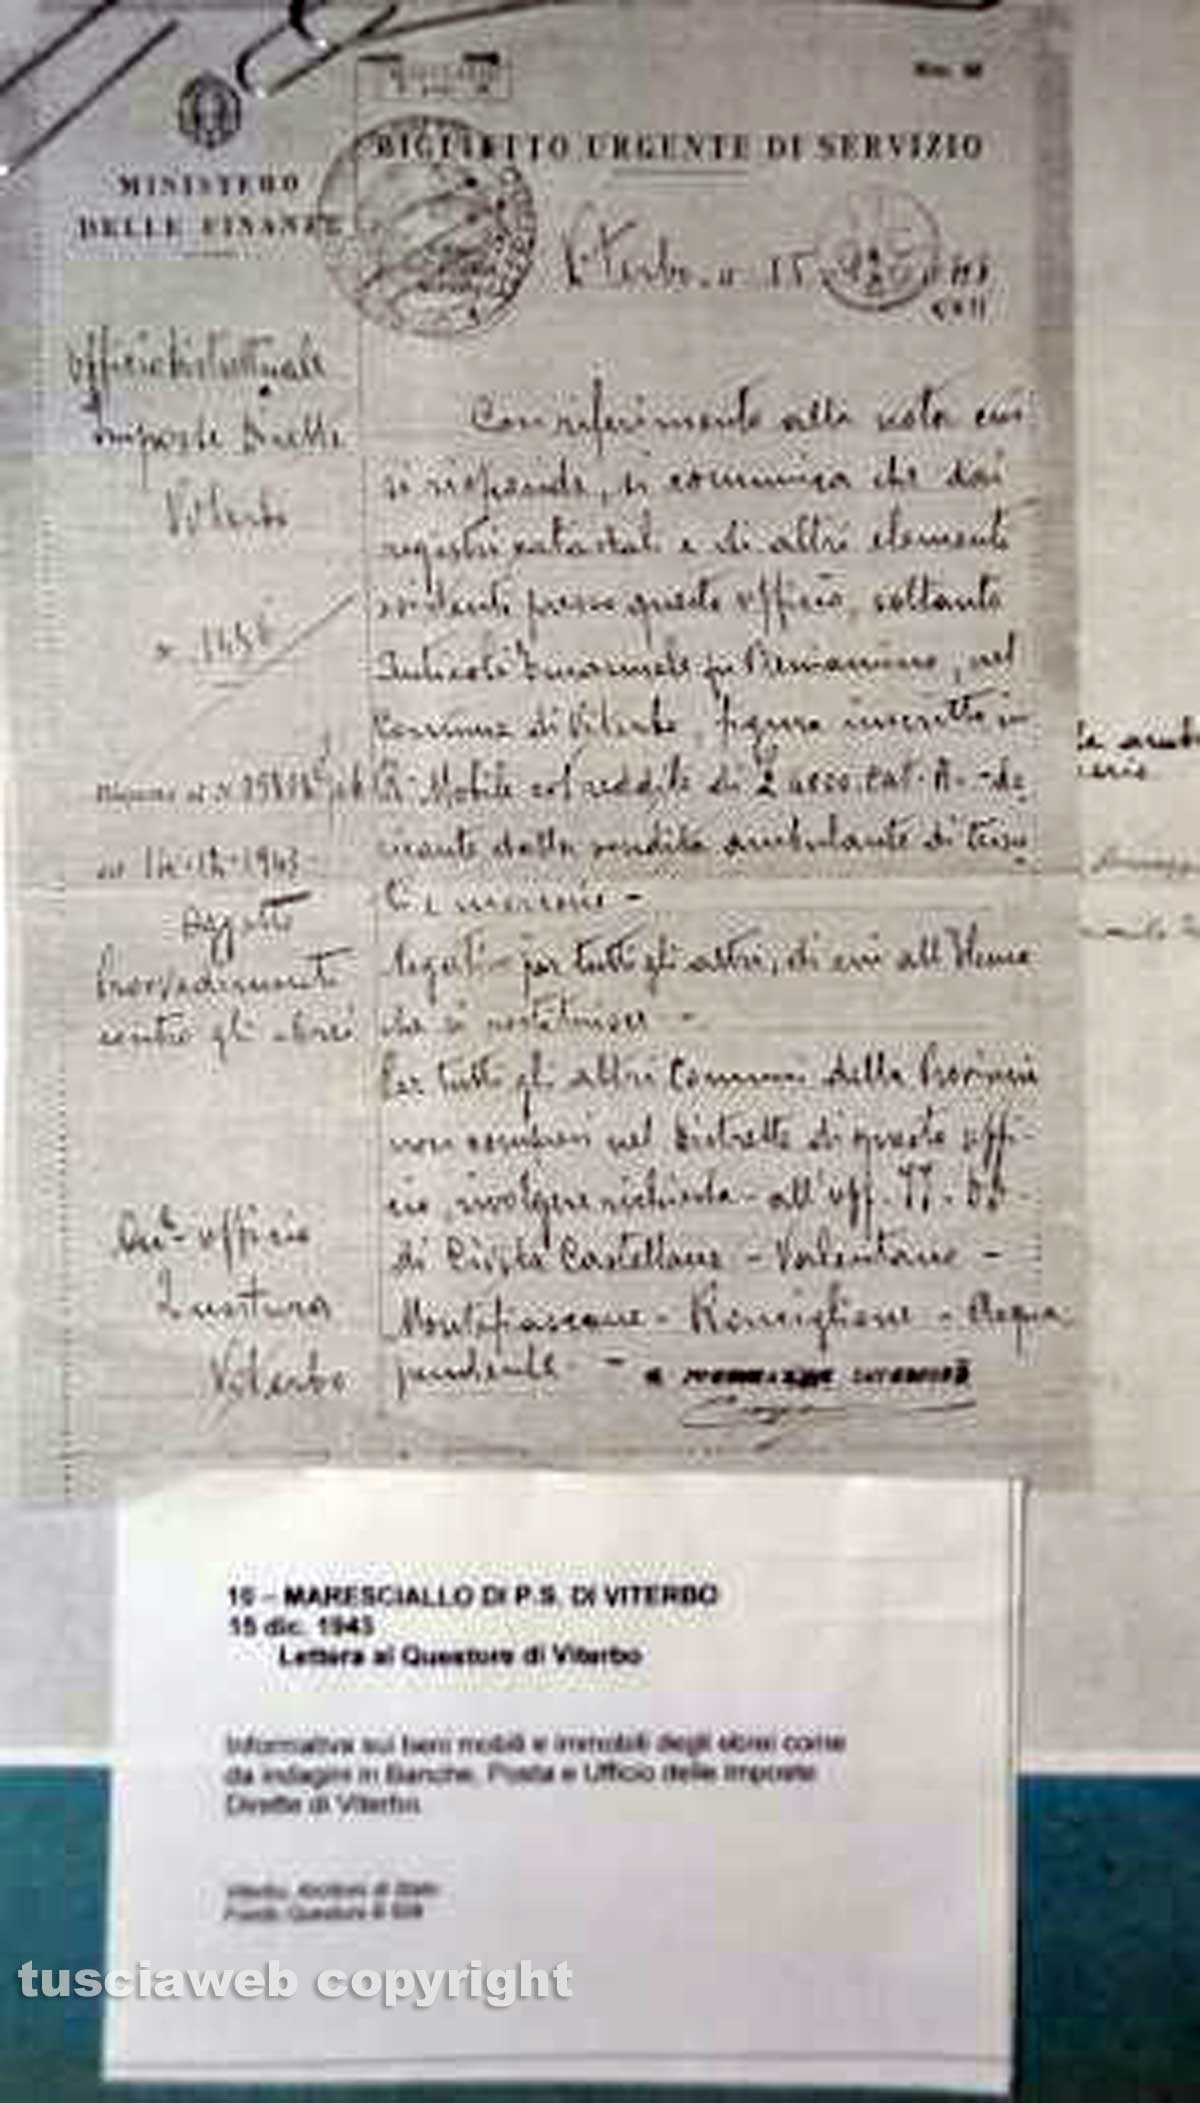 MINISTERO
DELLE FINANZE
BIGLIETTO URGENTE DI SERVIZIO
Viterbo, a 15
Ufficio distrettuale
Imposte Dirette
Viterbo
Con riferimento alla nota cui
si risponde, si comunica che dai
registri catastali e di altri elementi
esistenti presso questo ufficio, soltanto
fu Beniamino, nel
Comune di Viterbo, figura inscritto in
R. Mobile col reddito di Cat. A. - de
rivante dalla vendita ambulante di tessu
ti e mercerie -
del 14-12-1943
Oggetto
Provvedimenti
contro gli ebrei
Negativo per tutti gli altri, di cui all'elenco
che si restituisce -
Per tutti gli altri Comuni della Provincia
non compresi nel distretto di questo uffi-
cio, rivolgere richiesta all'uff. II. DD.
di Civita Castellana - Valentano -
Montefiascone - Ronciglione - Acqua
pendente -
ufficio
Questura
Viterbo
10 – MARESCIALLO DI P.S. DI VITERBO
15 dic. 1943
Lettera al Questore di Viterbo
Informativa sui beni mobili e immobili degli ebrei come
da indagini in Banche, Posta e Ufficio delle Imposte
Dirette di Viterbo.
Viterbo, Archivio di Stato
Fondo Questura
tusciaweb copyright